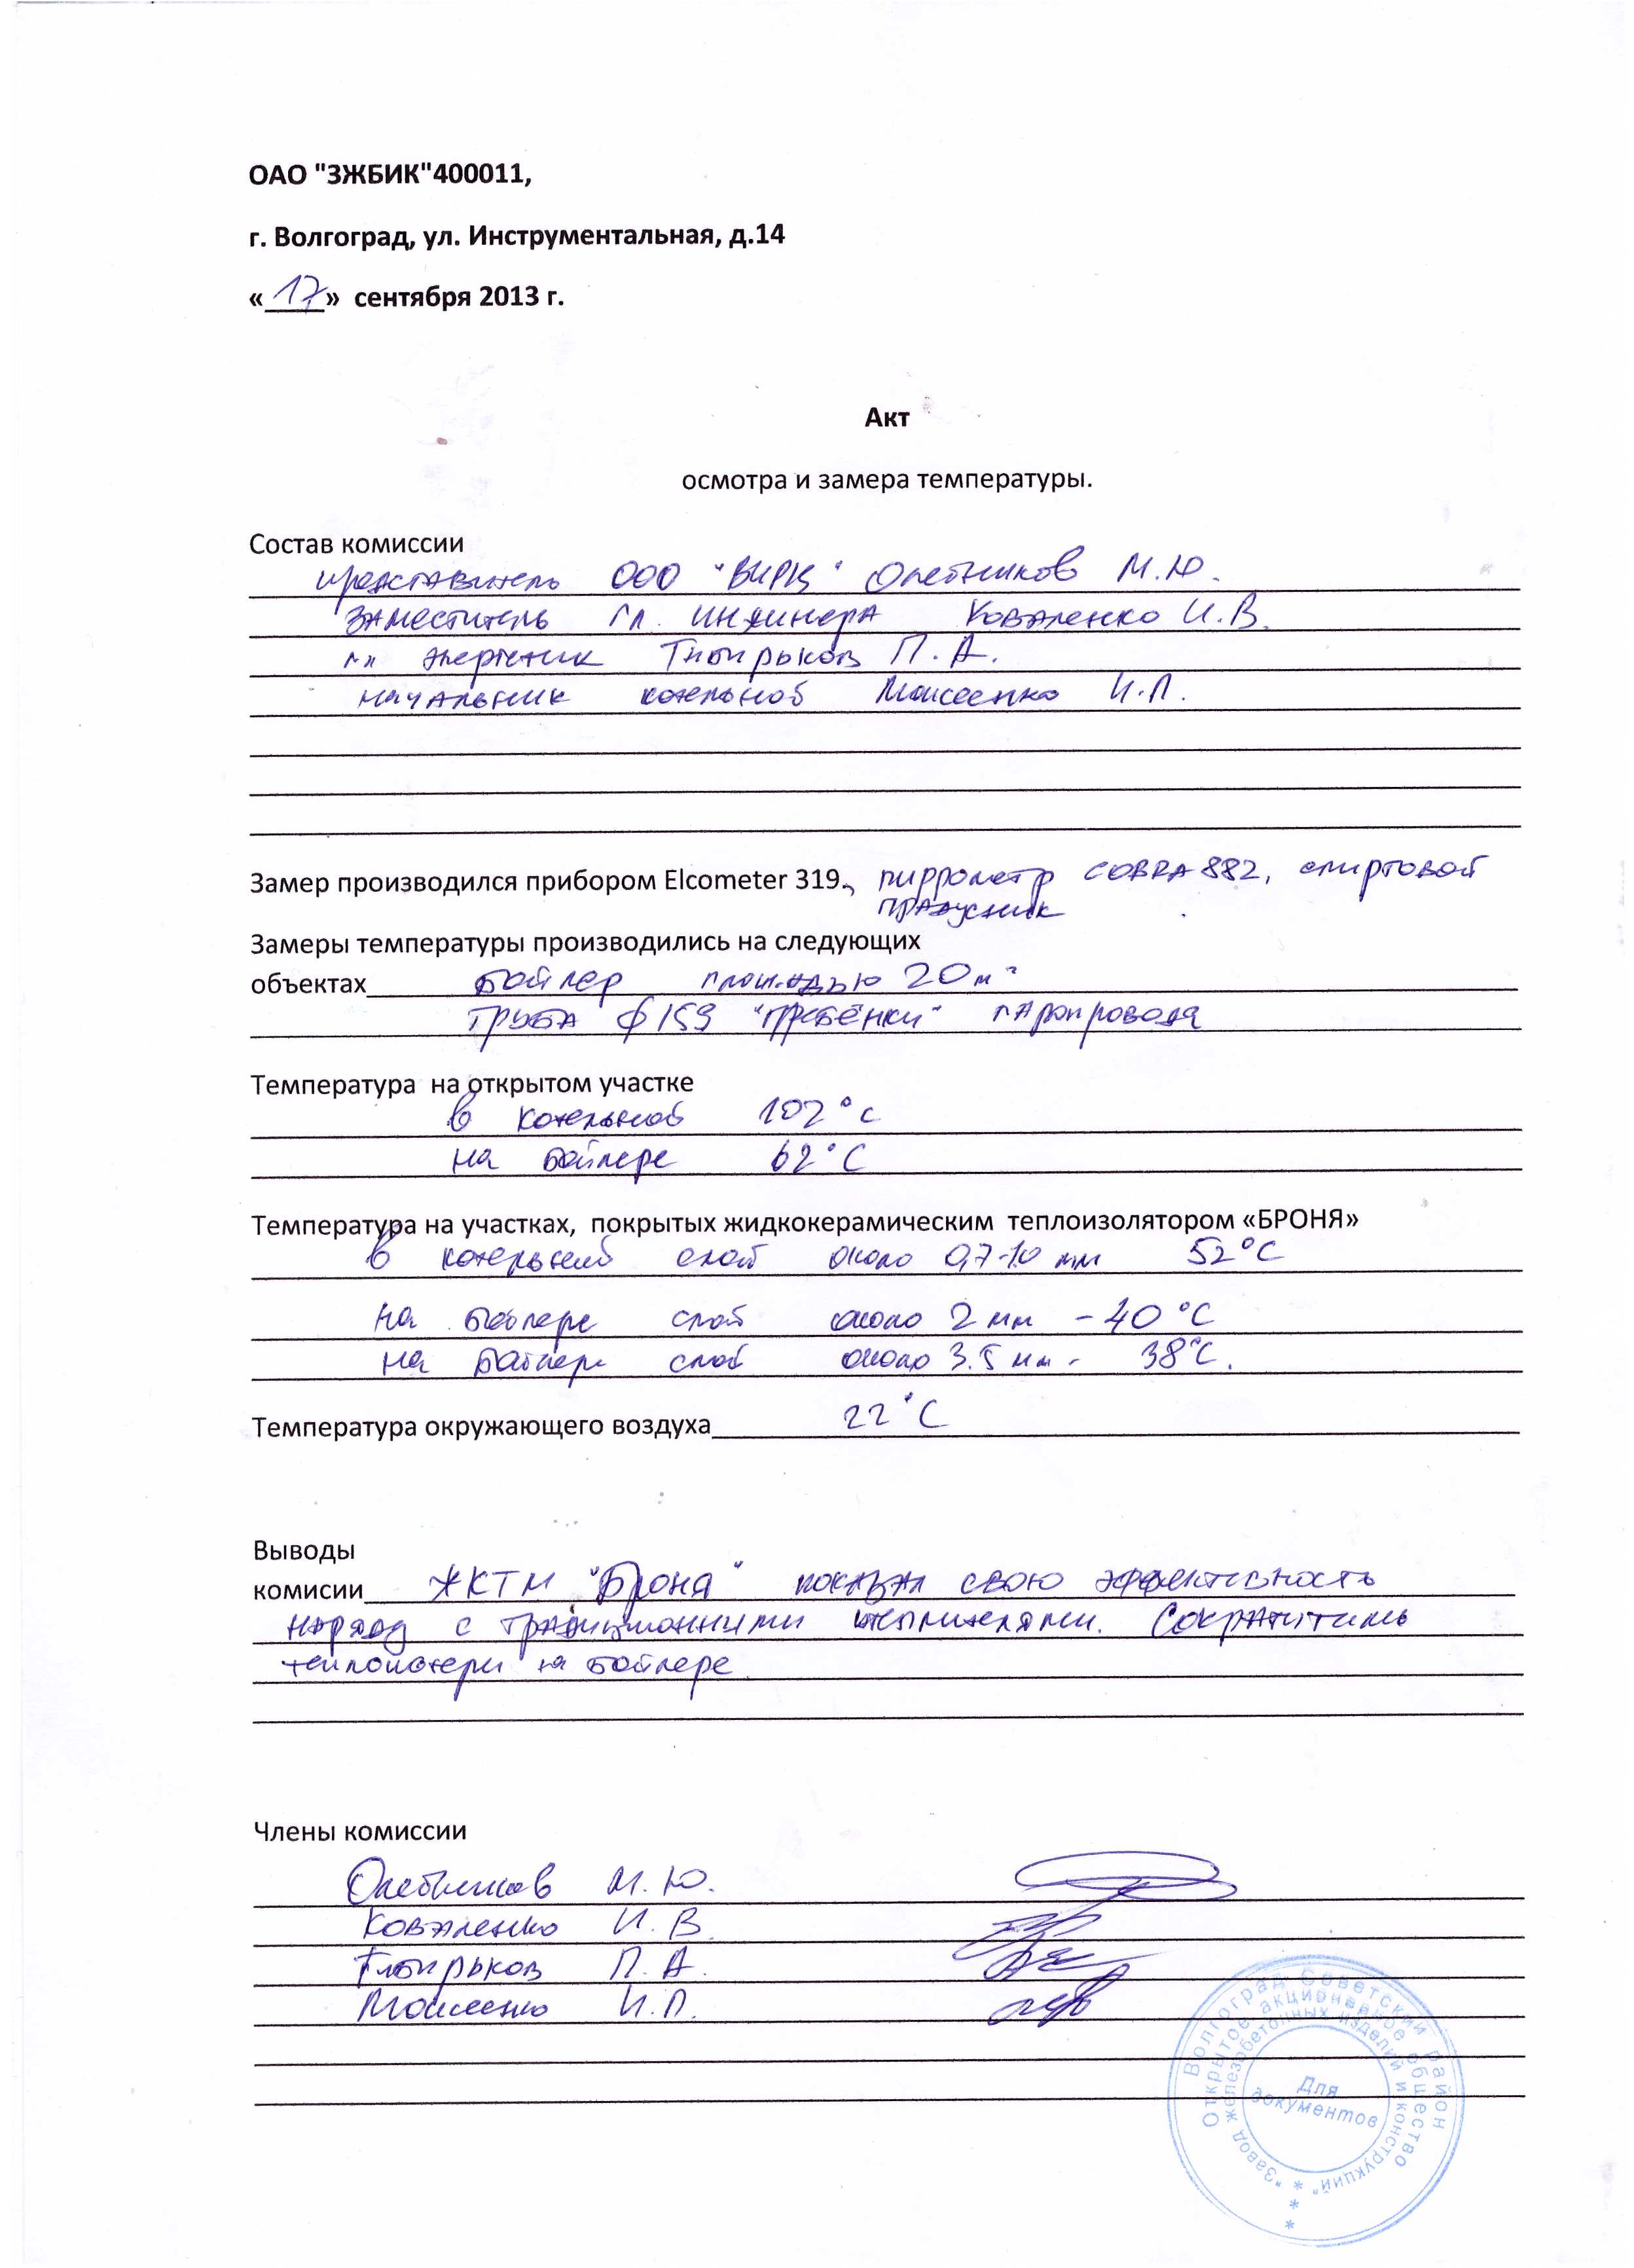 ОАО "ЗЖБИК"400011,
г. Волгоград, ул. Инструментальная, д.14
«17» сентября 2013 г.
Акт
осмотра и замера температуры.
Состав комиссии
представитель ООО "ВИРЦ" М.Ю.
заместитель гл. инжинера Коваленко И.В.
гл энергетик П.А.
начальник котельной Моисеенко И.П.
Замер производился прибором Elcometer 319, пиррометр COBRA 882, спиртовой
градусник
Замеры температуры производились на следующих
объектах бойлер площадью 20 м²
труба ф 159 "гребёнки" паропровода
Температура на открытом участке
в котельной 102°С
на бойлере 62°С
Температура на участках, покрытых жидкокерамическим теплоизолятором «БРОНЯ»
в котельной слой около 0,7-1.0 мм 52°С
на бойлере слой около 2 мм - 40°С
на бойлере слой около 3.5 мм - 38°С.
Температура окружающего воздуха 22°С
Выводы
комисии ЖКТМ "Броня" показал свою эффективность
наряду с традиционными утеплителями.
теплопотери на бойлере
Члены комиссии
М.Ю.
Коваленко И.В.
П.А.
Моисеенко И.П.
Волгоград Советский район
Открытое акционерное общество
"Завод железобетонных изделий и конструкций"
Для
документов